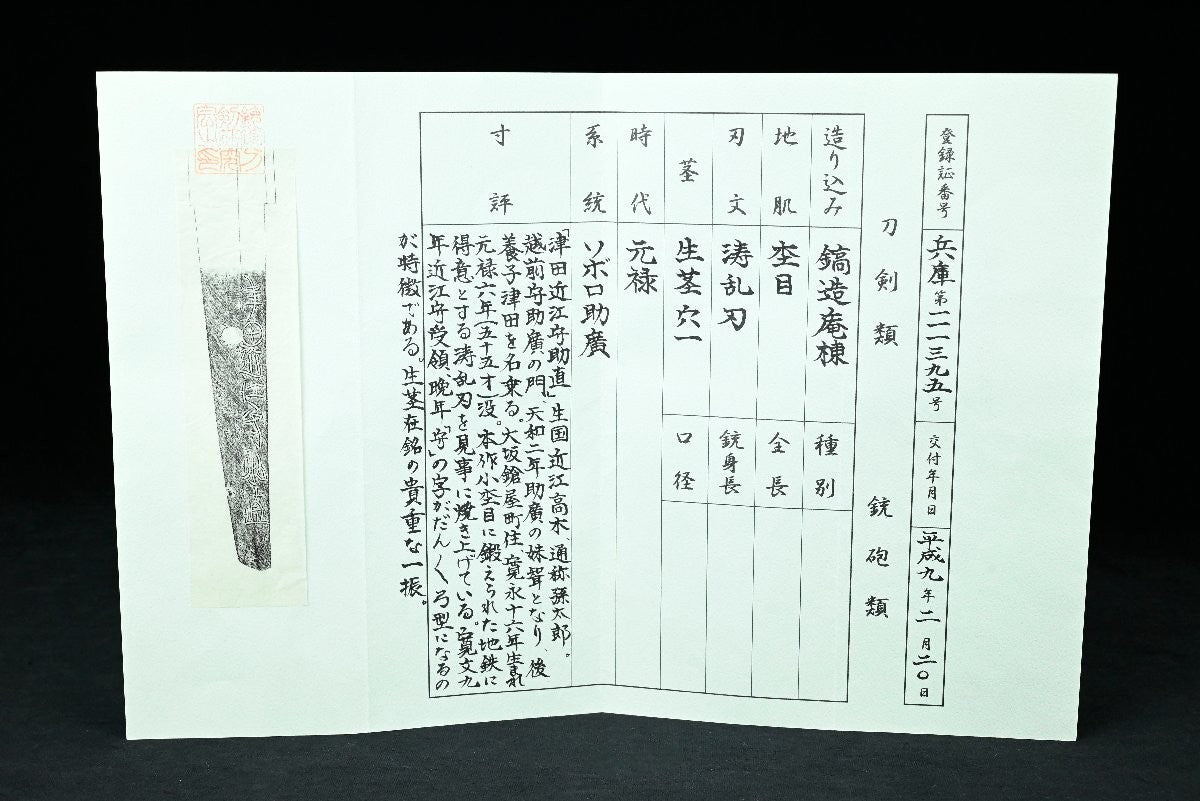 登録証番号 兵庫第一一三九五号 交付年月日 平成九年二月二〇日
刀剣類 銃砲類
造り込み 鎬造庵棟 種別
地肌 杢目 全長
刃文 涛乱刃 銃身長
茎 生茎穴一 口径
時代 元禄
系統 ソボロ助廣
寸評
「津田近江守助直」生国近江高木、通称孫太郎。
越前守助廣の門、天和二年助廣の妹聟となり、後
養子津田を名乗る。大坂鎗屋町住、寛永十六年生まれ
元禄六年(五十五才)没。本作小杢目に鍛えられた地鉄に
得意とする涛乱刃を見事に焼き上げている。寛文九
年近江守受領、晩年「守」の字がだん〱弓型になるの
が特徴である。生茎在銘の貴重な一振。